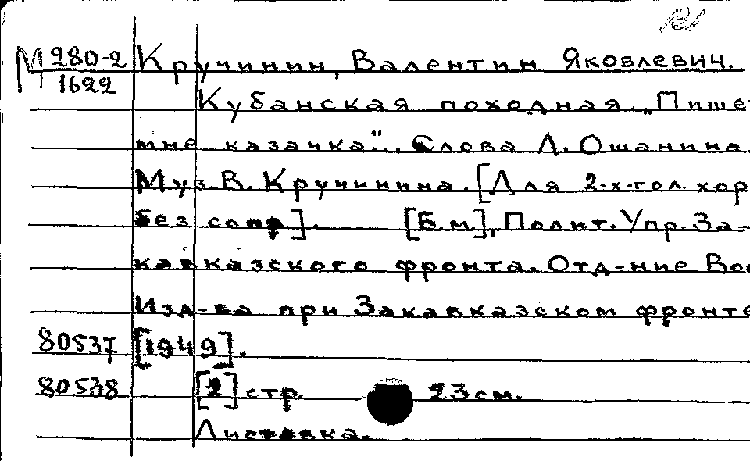 М 280-2 Кручинин, Валентин Яковлевич.
1622 Кубанская походная „Пише
мне казачка". Слова Л. Ошанина.
Муз. В. Кручинина. [Для 2-х-гол. хор
без сопр]. [Б.м], Полит. Упр. За-
кавказского фронта. Отд-ние Во
Изд-ва при Закавказском фронте
80537 [1949].
80538 [2] стр. 23 см.
Листовка.